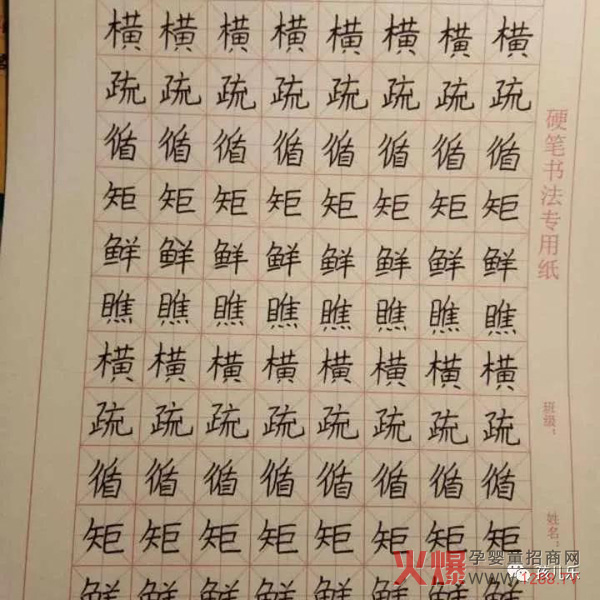 横横横横横横横横
疏疏疏疏疏疏疏疏
循循循循循循循循
矩矩矩矩矩矩矩矩
鲜鲜鲜鲜鲜鲜鲜鲜
瞧瞧瞧瞧瞧瞧瞧瞧
横横横横横横横横
疏疏疏疏疏疏疏疏
循循循循循循循循
矩矩矩矩矩矩矩矩
鲜鲜鲜鲜鲜鲜
硬笔书法专用纸
班级：
姓名：
火爆孕婴童招商网
www.1288.TV
孩儿乐